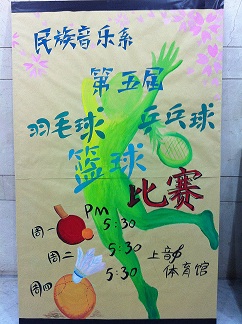 民族音乐系
第五届
羽毛球 乒乓球
篮球
比赛
PM
周一 5:30
周二 5:30
周四 5:30
上音体育馆